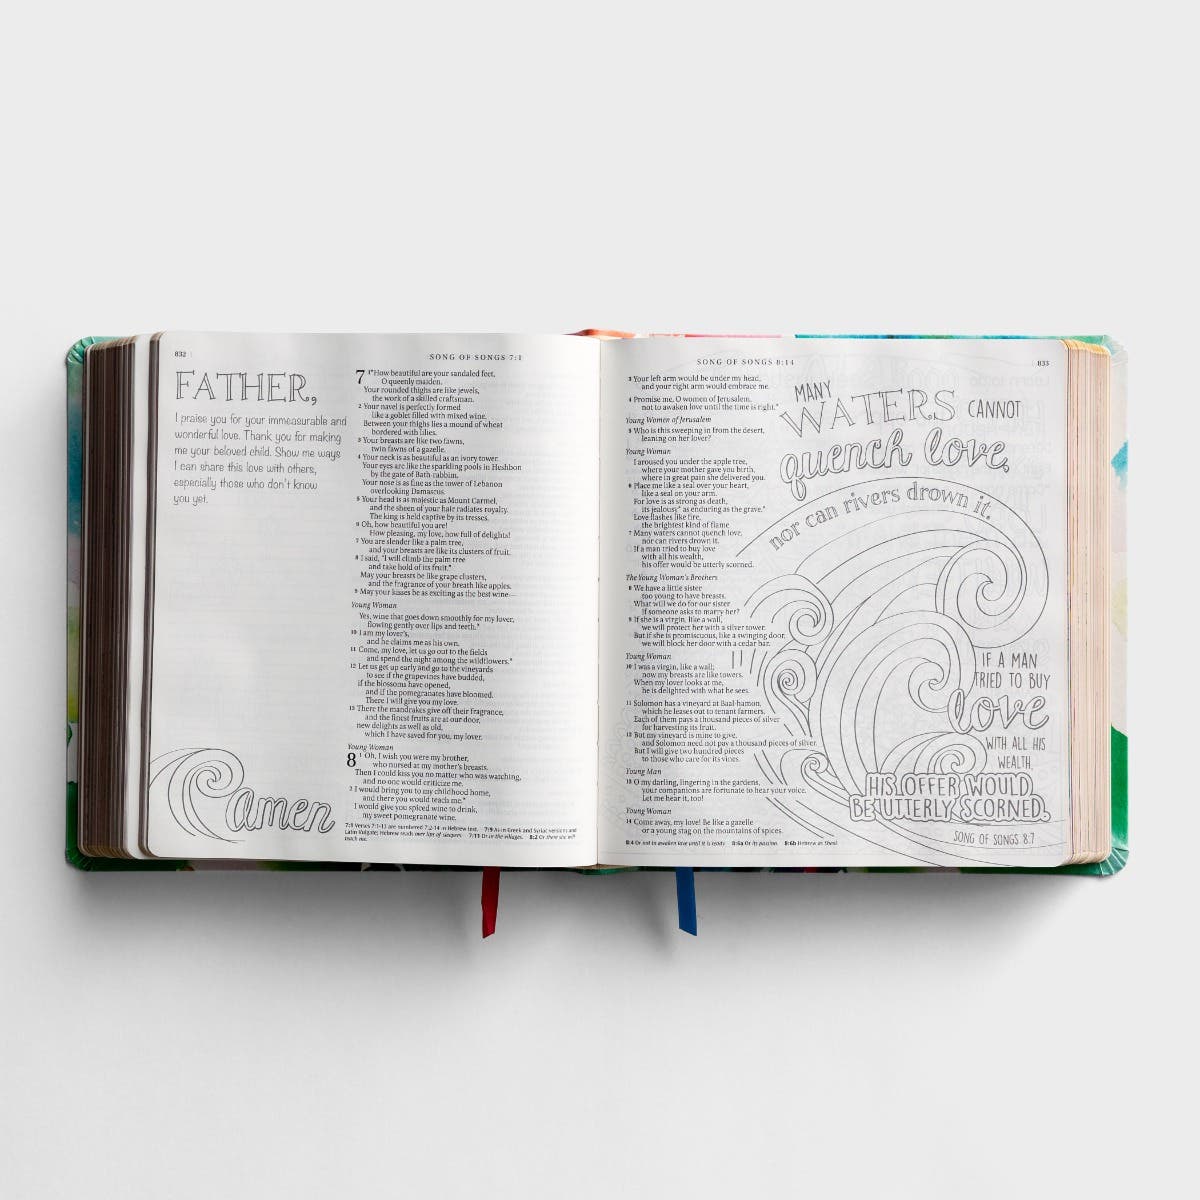 832
SONG OF SONGS 7:1
FATHER,
I praise you for your immeasurable and
wonderful love. Thank you for making
me your beloved child. Show me ways
I can share this love with others,
especially those who don't know
you yet.
amen
7 1 "How beautiful are your sandaled feet,
O queenly maiden.
Your rounded thighs are like jewels,
the work of a skilled craftsman.
2 Your navel is perfectly formed
like a goblet filled with mixed wine.
Between your thighs lies a mound of wheat
bordered with lilies.
3 Your breasts are like two fawns,
twin fawns of a gazelle.
4 Your neck is as beautiful as an ivory tower.
Your eyes are like the sparkling pools in Heshbon
by the gate of Bath-rabbim.
Your nose is as fine as the tower of Lebanon
overlooking Damascus.
5 Your head is as majestic as Mount Carmel,
and the sheen of your hair radiates royalty.
The king is held captive by its tresses.
6 Oh, how beautiful you are!
How pleasing, my love, how full of delights!
7 You are slender like a palm tree,
and your breasts are like its clusters of fruit.
8 I said, "I will climb the palm tree
and take hold of its fruit."
May your breasts be like grape clusters,
and the fragrance of your breath like apples.
9 May your kisses be as exciting as the best wine—
Young Woman
Yes, wine that goes down smoothly for my lover,
flowing gently over lips and teeth.*
10 I am my lover's,
and he claims me as his own.
11 Come, my love, let us go out to the fields
and spend the night among the wildflowers.*
12 Let us get up early and go to the vineyards
to see if the grapevines have budded,
if the blossoms have opened,
and if the pomegranates have bloomed.
There I will give you my love.
13 There the mandrakes give off their fragrance,
and the finest fruits are at our door,
new delights as well as old,
which I have saved for you, my lover.
Young Woman
8 1 Oh, I wish you were my brother,
who nursed at my mother's breasts.
Then I could kiss you no matter who was watching,
and no one would criticize me.
2 I would bring you to my childhood home,
and there you would teach me.*
I would give you spiced wine to drink,
my sweet pomegranate wine.
7:1 Verses 7:1-13 are numbered 7:2-14 in Hebrew text. 7:9 As in Greek and Syriac versions and
Latin Vulgate; Hebrew reads over lips of sleepers. 7:11 Or in the villages. 8:2 Or there she will
teach me.
SONG OF SONGS 8:14
833
3 Your left arm would be under my head,
and your right arm would embrace me.
4 Promise me, O women of Jerusalem,
not to awaken love until the time is right.*
Young Women of Jerusalem
5 Who is this sweeping in from the desert,
leaning on her lover?
Young Woman
I aroused you under the apple tree,
where your mother gave you birth,
where in great pain she delivered you.
6 Place me like a seal over your heart,
like a seal on your arm.
For love is as strong as death,
its jealousy* as enduring as the grave.*
Love flashes like fire,
the brightest kind of flame.
7 Many waters cannot quench love,
nor can rivers drown it.
If a man tried to buy love
with all his wealth,
his offer would be utterly scorned.
The Young Woman's Brothers
8 We have a little sister
too young to have breasts.
What will we do for our sister
if someone asks to marry her?
9 If she is a virgin, like a wall,
we will protect her with a silver tower.
But if she is promiscuous, like a swinging door,
we will block her door with a cedar bar.
Young Woman
10 I was a virgin, like a wall;
now my breasts are like towers.
When my lover looks at me,
he is delighted with what he sees.
11 Solomon has a vineyard at Baal-hamon,
which he leases out to tenant farmers.
Each of them pays a thousand pieces of silver
for harvesting its fruit.
12 But my vineyard is mine to give,
and Solomon need not pay a thousand pieces of silver.
But I will give two hundred pieces
to those who care for its vines.
Young Man
13 O my darling, lingering in the gardens,
your companions are fortunate to hear your voice.
Let me hear it, too!
Young Woman
14 Come away, my love! Be like a gazelle
or a young stag on the mountains of spices.
8:4 Or not to awaken love until it is ready. 8:6a Or its passion. 8:6b Hebrew as Sheol.
MANY
WATERS CANNOT
quench love,
nor can rivers drown it.
IF A MAN
TRIED TO BUY
love
WITH ALL HIS
WEALTH,
HIS OFFER WOULD
BE UTTERLY SCORNED.
SONG OF SONGS 8:7